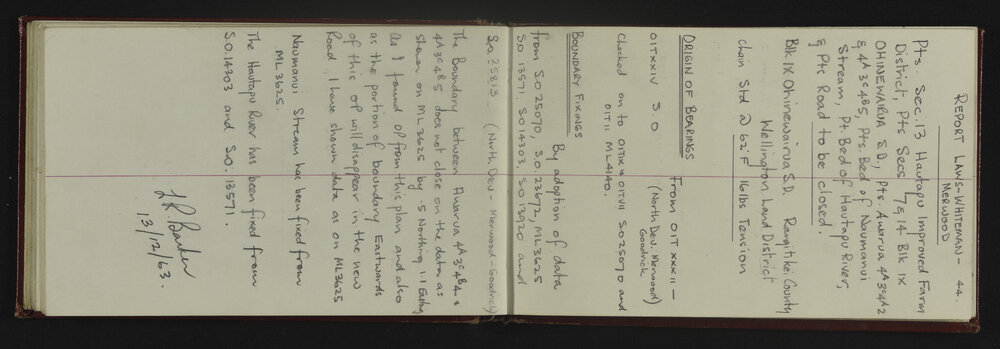 REPORT LAWS-WHITEMAN- 44.
MERWOOD
Pts. Sec. 13 Hautapu Improved Farm
District, Pts Secs 7 & 14 Blk IX
OHINEWAIRUA S.D., Pts. Awarua 4A3C4A2
& 4A3C4B5, Pts. Bed of Naumanui
Stream, Pt. Bed of Hautapu River,
& Pts Road to be closed.
Blk IX Ohinewairua S.D. Rangitikei County
Wellington Land District
Chain Std @ 62°F 16lbs Tension
ORIGIN OF BEARINGS
From OIT XXXII -
OIT XXIV 3 0 (North Dev. Merwood)
Goodrick
Checked on to OITIX & OITVII SO 25070 and
OIT II ML 4140.
BOUNDARY FIXINGS
By adoption of data
from S.O 25070, S.O. 23672, ML 3625
S.O 13571, SO 14303, SO 13920 and
S.O 25813 (North Dev - Merwood - Goodrick)
The Boundary between Awarua 4A3C4B4 &
4A3C4B5 does not close on the data as
shown on ML 3625 by 5 Northing 1.1 Easting
As I found OP from this plan and also
as the portion of boundary Eastwards
of this OP will disappear in the new
Road, I have shown data as on ML 3625
Naumanui Stream has been fixed from
ML 3625.
The Hautapu River has been fixed from
S.O. 14303 and S.O. 13571.
13/12/63.